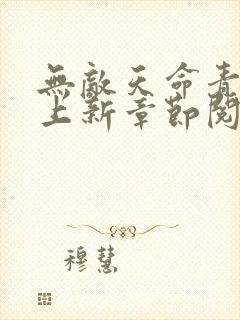 無敵天命青
上新章節閱
穆慧